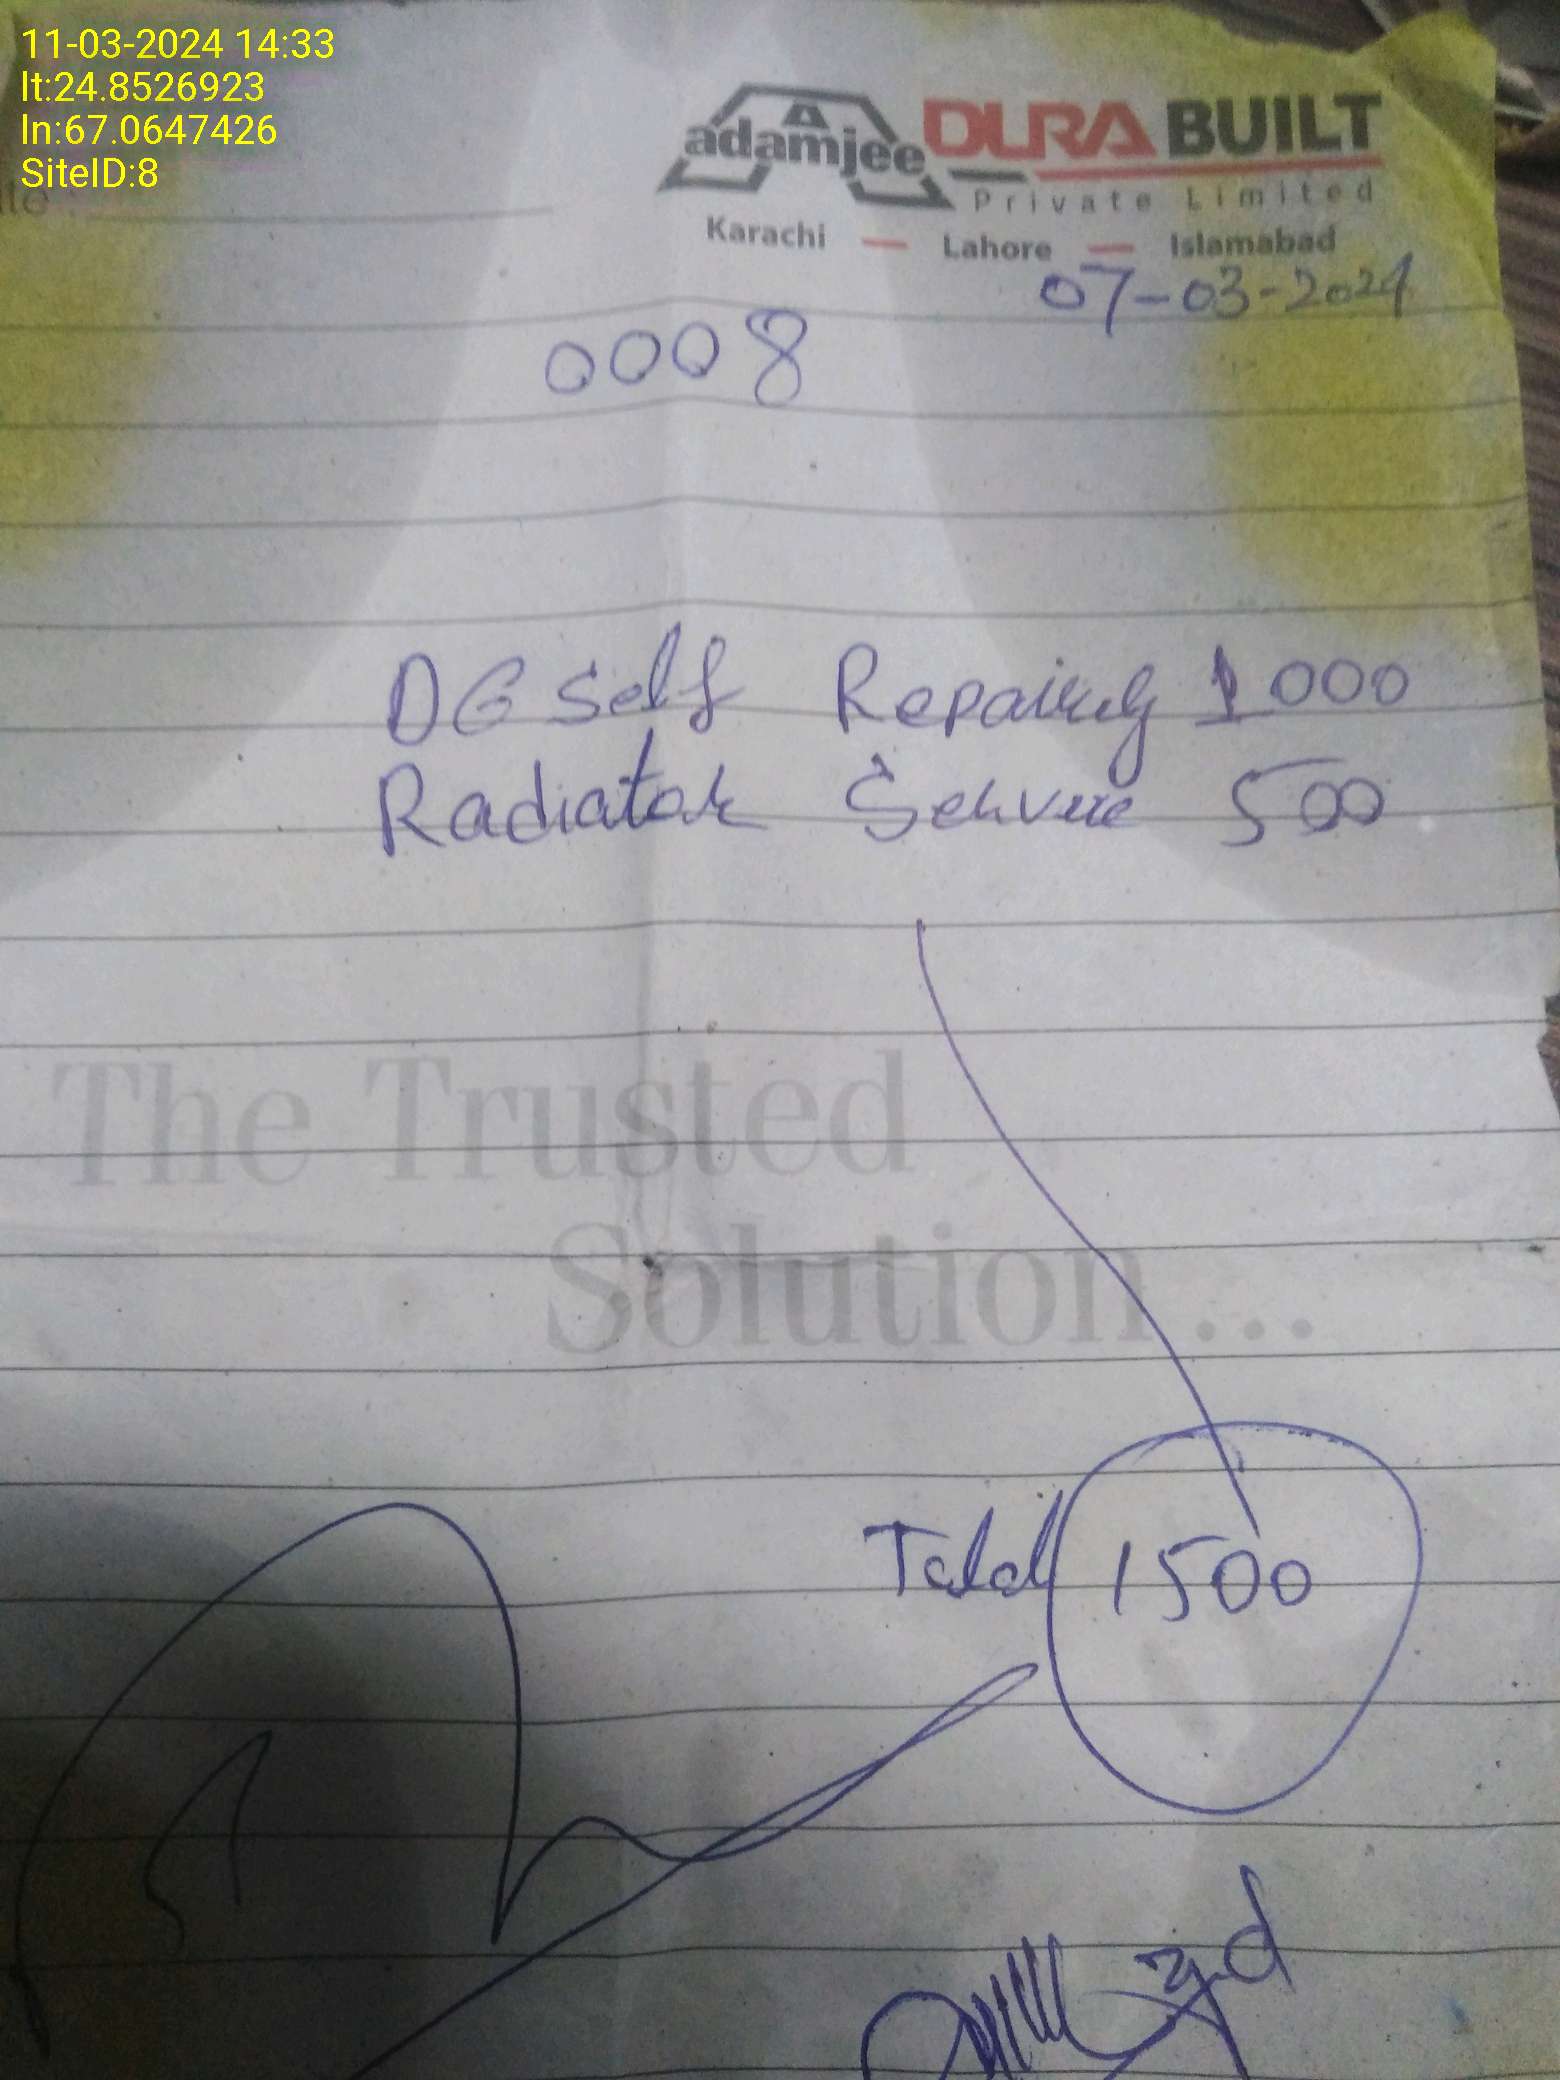 11-03-2024 14:33
lt:24.8526923
ln:67.0647426
SiteID:8
adamjee DURA BUILT
Private Limited
Karachi — Lahore — Islamabad
07-03-2024
0008
DG Self Repairing 1000
Radiator Service 500
The Trusted
Solution...
Total 1500